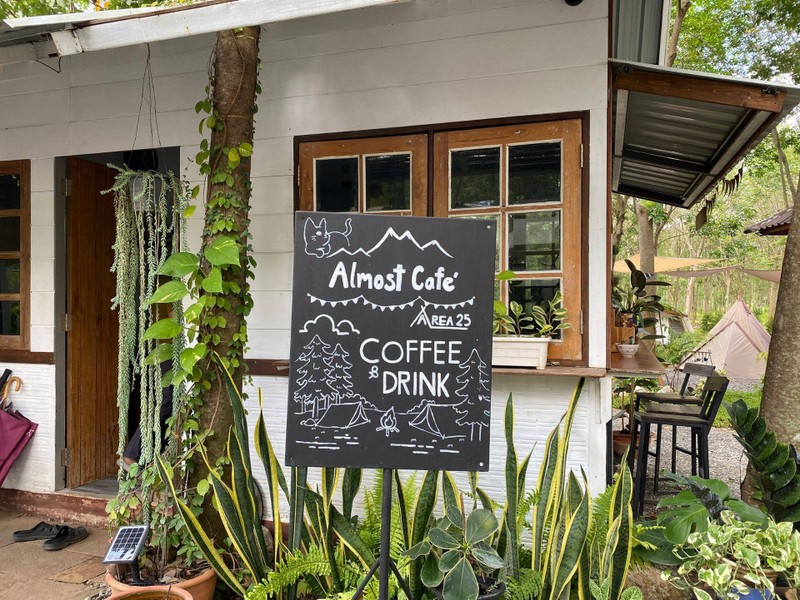 Almost Café
AREA 25
COFFEE
& DRINK